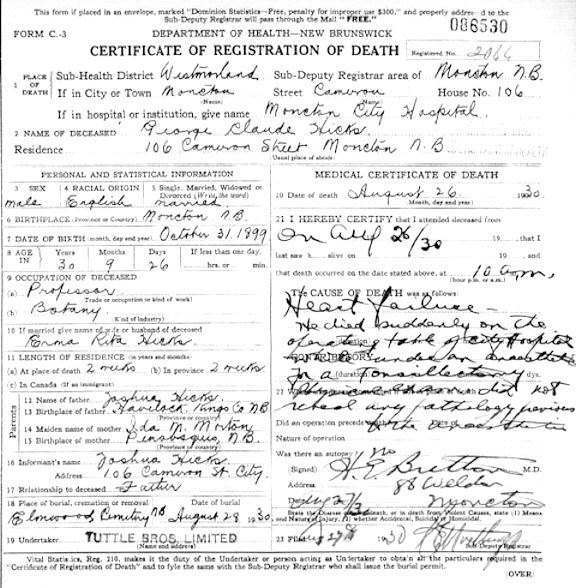 This form if placed in an envelope, marked "Dominion Statistics—Free, penalty for improper use $300," and properly addressed to the
Sub-Deputy Registrar will pass through the Mail "FREE."
086530
FORM C.-3
DEPARTMENT OF HEALTH—NEW BRUNSWICK
CERTIFICATE OF REGISTRATION OF DEATH
Registered No. 2066
1 PLACE OF DEATH
Sub-Health District Westmorland Sub-Deputy Registrar area of Moncton N.B.
If in City or Town Moncton Street Cameron House No. 106
(Name) (Name)
If in hospital or institution, give name Moncton City Hospital
2 NAME OF DECEASED George Claude Hicks
Residence 106 Cameron Street Moncton N.B
(Usual place of abode)
PERSONAL AND STATISTICAL INFORMATION
3 SEX male
4 RACIAL ORIGIN English
5 Single, Married, Widowed or Divorced (Write the word) married
6 BIRTHPLACE (Province or Country) Moncton N.B.
7 DATE OF BIRTH (month, day and year) October 31. 1899
8 AGE IN Years Months Days If less than one day,
30 9 26 hrs. or min.
9 OCCUPATION OF DECEASED
(a) Professor
Trade or occupation (or kind of work)
(b) Botany
Kind of industry
10 If married give name of wife or husband of deceased
Erma Rita Hicks
11 LENGTH OF RESIDENCE (in years and months)
(a) At place of death 2 weeks (b) In province 2 weeks
(c) In Canada (If an immigrant)
Parents
12 Name of father Joshua Hicks
13 Birthplace of father Havelock Kings Co N.B
(Province or country)
14 Maiden name of mother Ida M. Morton
15 Birthplace of mother Penobsquis, N.B.
(Province or country)
16 Informant's name Joshua Hicks
Address 106 Cameron St. City
17 Relationship to deceased Father
18 Place of burial, cremation or removal Date of burial
Elmwood Cemetery NB August 28 1930
19 Undertaker TUTTLE BROS. LIMITED
(Name and address)
MEDICAL CERTIFICATE OF DEATH
20 Date of death August 26 1930
(Month, day and year)
21 I HEREBY CERTIFY that I attended deceased from
on Aug 26/30 19 that I
last saw h alive on 19 and
that death occurred on the date stated above, at 10 a.m.
(hour p.m. or a.m.)
The CAUSE OF DEATH was as follows:
Heart failure —
He died suddenly on the
operating table of city Hospital
CONTRIBUTORY
under an anaesthetic
for a (duration) tonsillectomy dys.
Physical exam did not
reveal any pathology previous
Did an operation precede
to the anaesthetic
Nature of operation
Was there an autopsy? no
(Signed) H.E. Britton M.D.
Address 88 Weldon
Moncton
State the Disease causing Death, or in death from Violent causes, state (1) Means and Nature of Injury, (2) whether Accidental, Suicidal or Homicidal.
23 Filed Aug 27th 1930
Sub-Deputy Registrar
Vital Statistics, Reg. 210, makes it the duty of the Undertaker or person acting as Undertaker to obtain all the particulars required in the
"Certificate of Registration of Death" and to fyle the same with the Sub-Deputy Registrar who shall issue the burial permit.
(OVER)